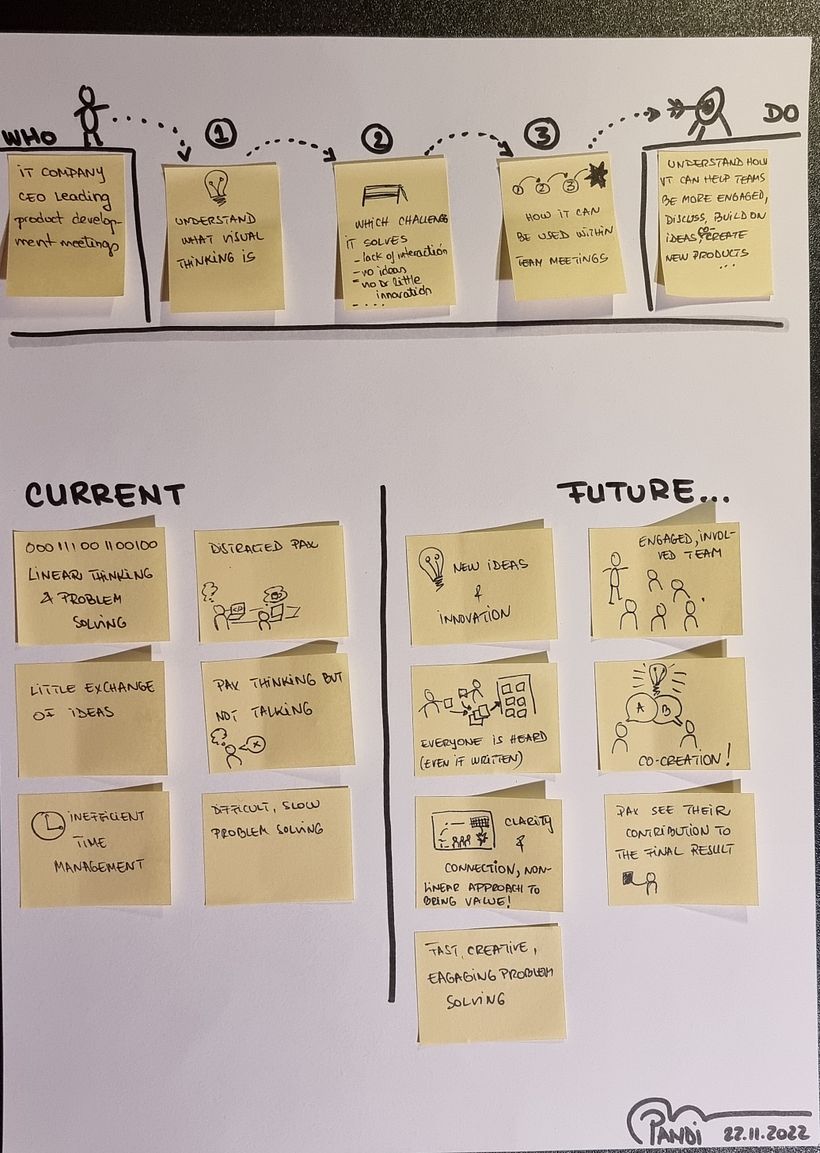 WHO
IT COMPANY
CEO Leading
product develop-
ment meetings
1
UNDERSTAND
WHAT VISUAL
THINKING IS
2
WHICH CHALLENGE
IT SOLVES
- lack of interaction
- no ideas
- no or little
innovation
- ...
3
1 2 3
HOW IT CAN
BE USED WITHIN
TEAM MEETINGS
DO
UNDERSTAND HOW
VT CAN HELP TEAMS
BE MORE ENGAGED,
DISCUSS, BUILD ON
IDEAS, CO-CREATE
NEW PRODUCTS
...
CURRENT
000 111 00 1100100
LINEAR THINKING
& PROBLEM
SOLVING
DISTRACTED PAX
LITTLE EXCHANGE
OF IDEAS
PAX THINKING BUT
NOT TALKING
X
INEFFICIENT
TIME
MANAGEMENT
DIFFICULT, SLOW
PROBLEM SOLVING
FUTURE...
NEW IDEAS
&
INNOVATION
ENGAGED, INVOL-
VED TEAM
EVERYONE IS HEARD
(EVEN IF WRITTEN)
A B
CO-CREATION!
CLARITY
&
CONNECTION, NON-
LINEAR APPROACH TO
BRING VALUE!
PAX SEE THEIR
CONTRIBUTION TO
THE FINAL RESULT
FAST, CREATIVE,
EAGAGING PROBLEM
SOLVING
PANDI 22.11.2022